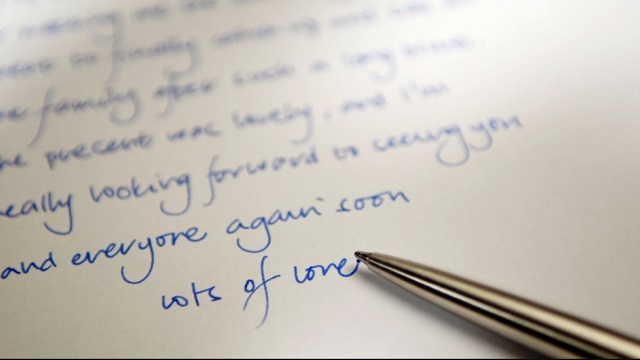 to finally catch up and see
the family after such a long time.
the present was lovely, and I'm
really looking forward to seeing you
and everyone again soon
lots of love